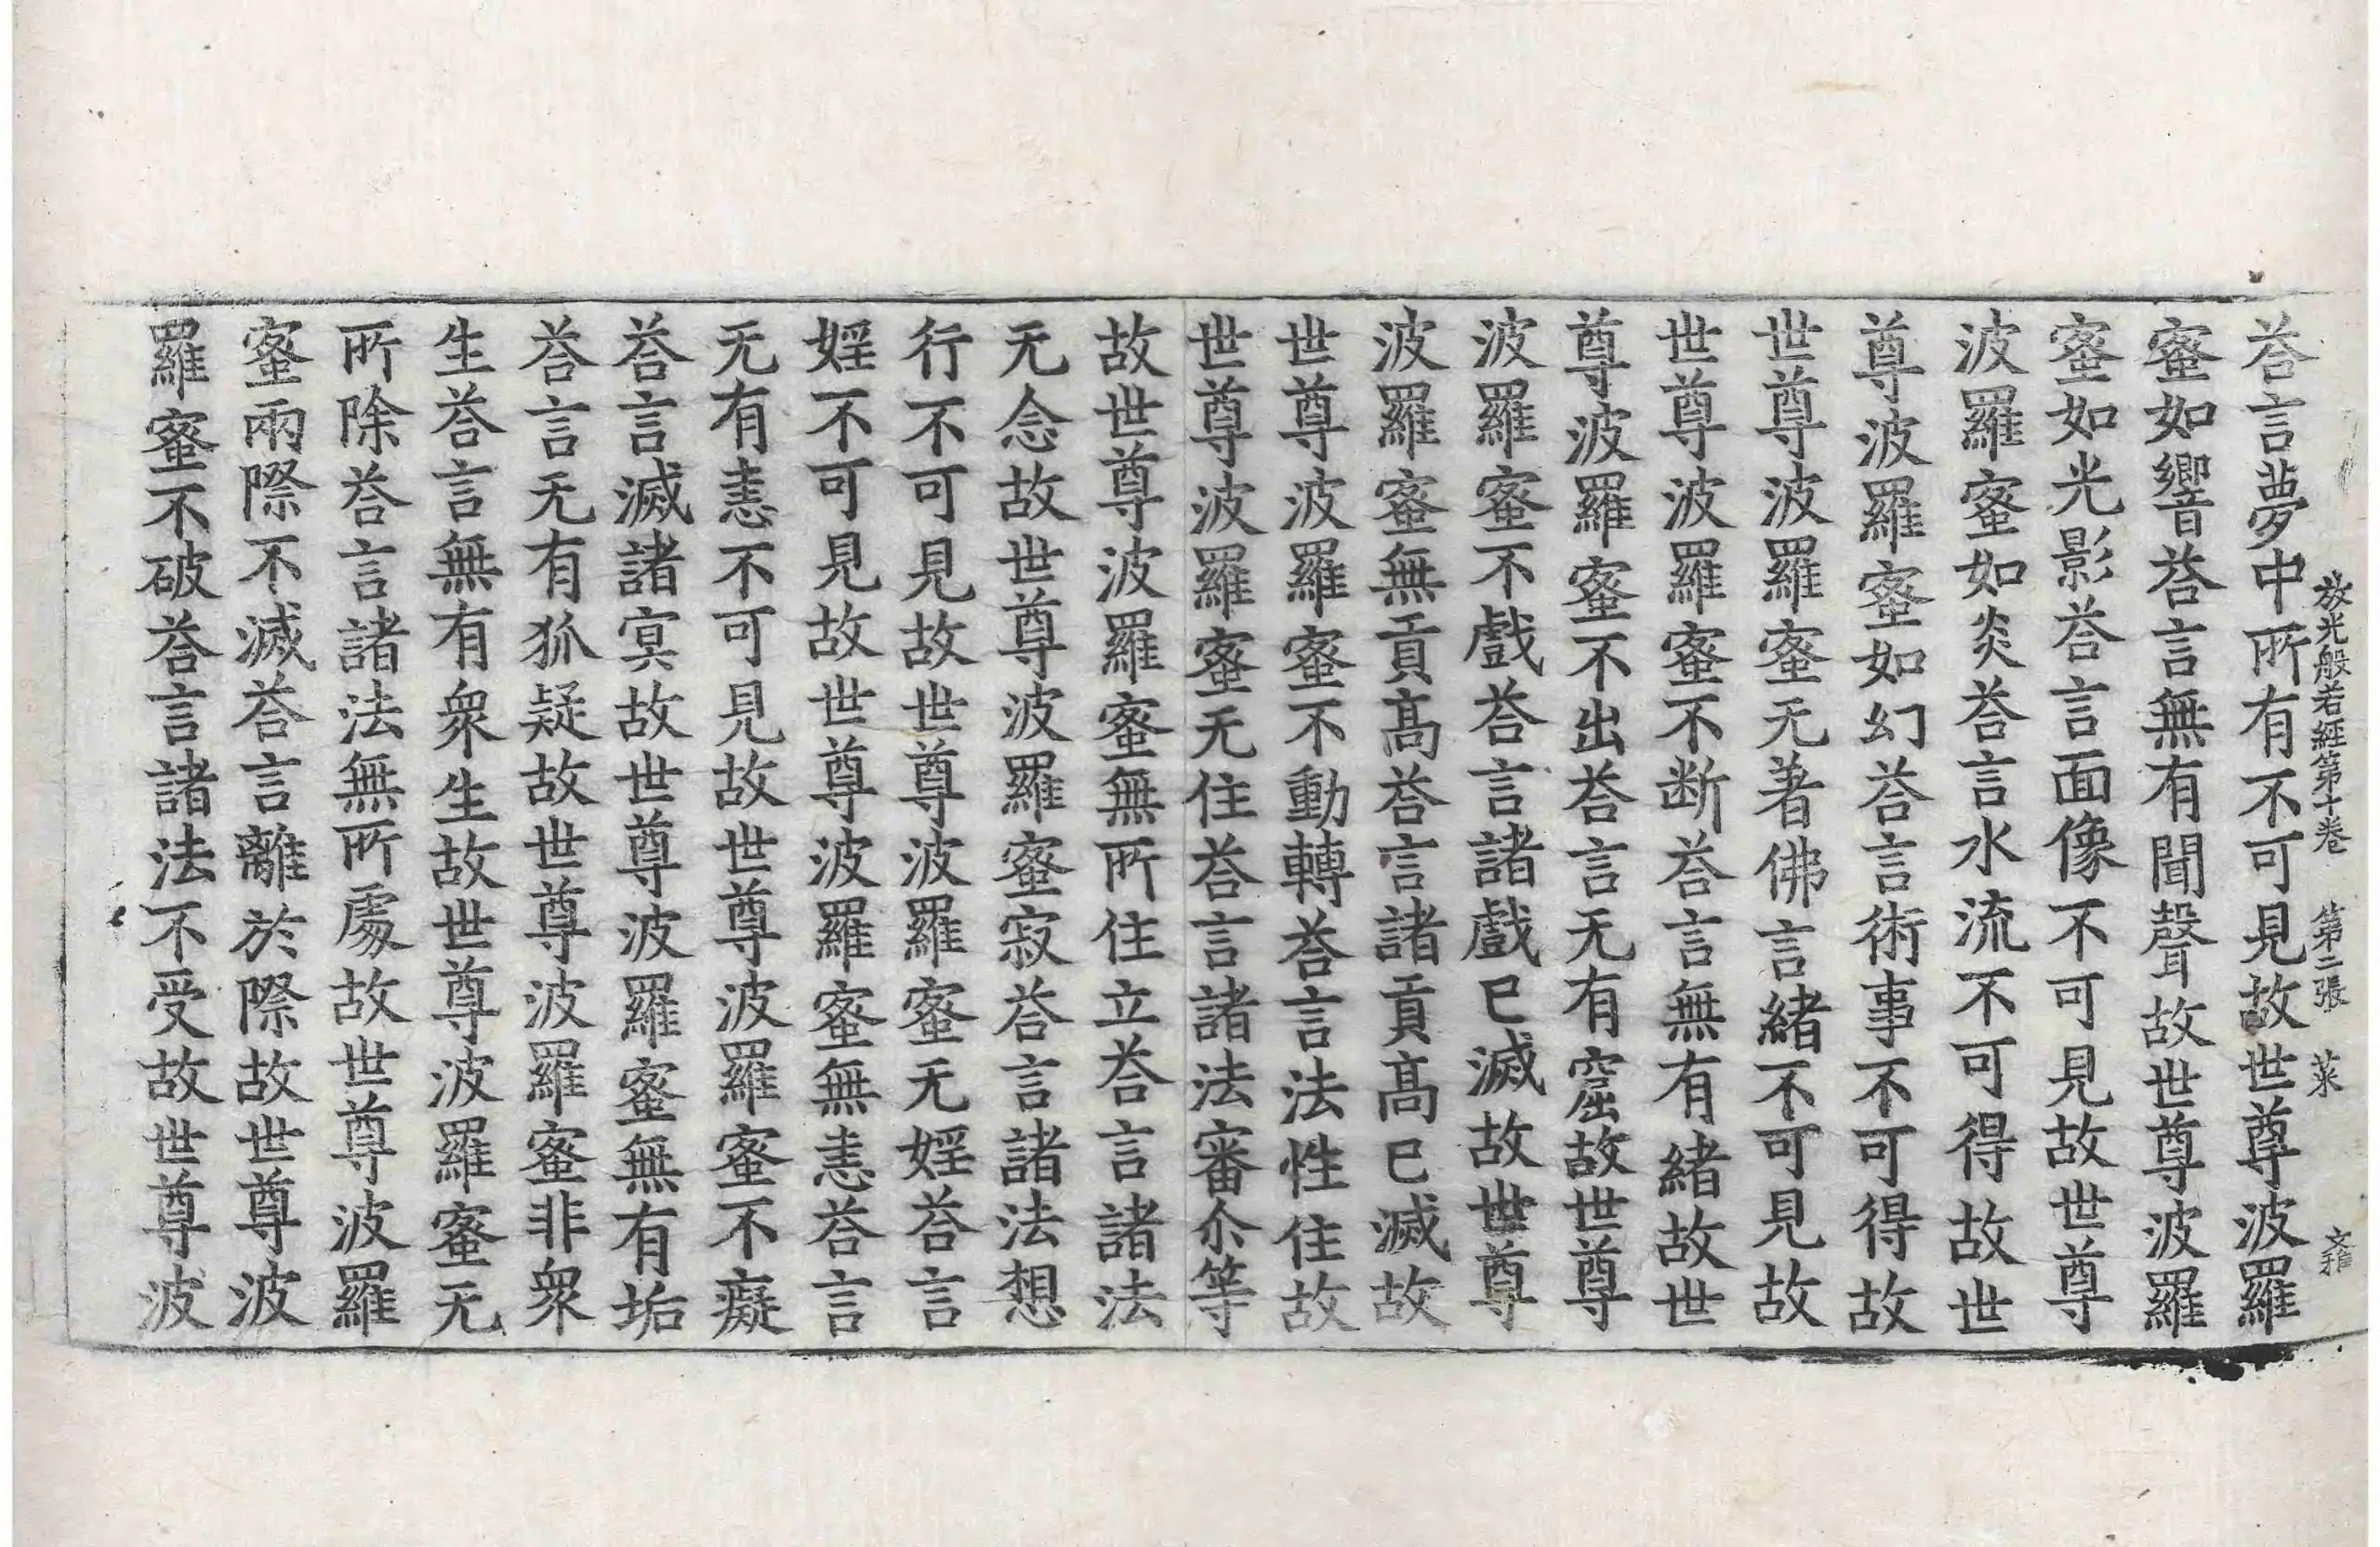 放光般若經第十卷 第二張 菜
荅言夢中所有不可見故世尊波羅
蜜如響荅言無有聞聲故世尊波羅
蜜如光影荅言面像不可見故世尊
波羅蜜如炎荅言水流不可得故世
尊波羅蜜如幻荅言術事不可得故
世尊波羅蜜无著佛言緒不可見故
世尊波羅蜜不断荅言無有緒故世
尊波羅蜜不出荅言无有窟故世尊
波羅蜜不戲荅言諸戲已滅故世尊
波羅蜜無貢高荅言諸貢高已滅故
世尊波羅蜜不動轉荅言法性住故
世尊波羅蜜无住荅言諸法審尒等
故世尊波羅蜜無所住立荅言諸法
无念故世尊波羅蜜寂荅言諸法想
行不可見故世尊波羅蜜无婬荅言
婬不可見故世尊波羅蜜無恚荅言
无有恚不可見故世尊波羅蜜不癡
荅言滅諸㝠故世尊波羅蜜無有垢
荅言无有狐疑故世尊波羅蜜非衆
生荅言無有衆生故世尊波羅蜜无
所除荅言諸法無所處故世尊波羅
蜜兩際不滅荅言離於際故世尊波
羅蜜不破荅言諸法不受故世尊波